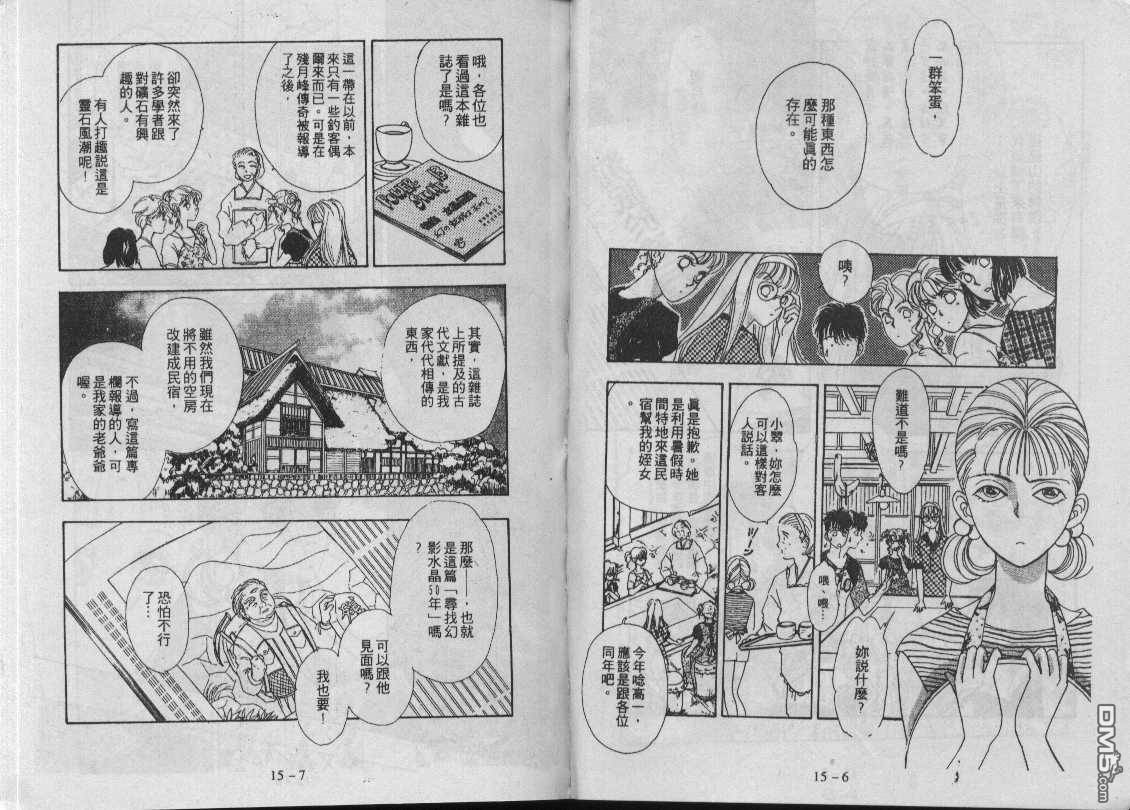 一群笨蛋，
那種東西怎
麼可能真的
存在。
咦？
難道不是嗎？
妳說什麼？
喂、喂…
小翠，妳怎麼
可以這樣對客
人說話。
真是抱歉。她
是利用暑假時
間特地來這民
宿幫我的姪女
。
今年唸高一，
應該是跟各位
同年吧。
15-6
哦，各位也
看過這本雜
誌了是嗎？
這一帶在以前，本
來只有一些釣客偶
爾來而已。可是在
殘月峰傳奇被報導
了之後，
卻突然來了
許多學者跟
對礦石有興
趣的人。
有人打趣說這是
靈石風潮呢！
其實，這雜誌
上所提及的古
代文獻，是我
家代代相傳的
東西，
雖然我們現在
將不用的空房
改建成民宿，
不過，寫這篇專
欄報導的人，可
是我家的老爺爺
喔。
那麼——，也就
是這篇「尋找幻
影水晶50年」嗎
？
可以跟他
見面嗎？
我也要！
恐怕不行
了…
15-7
DM5.com